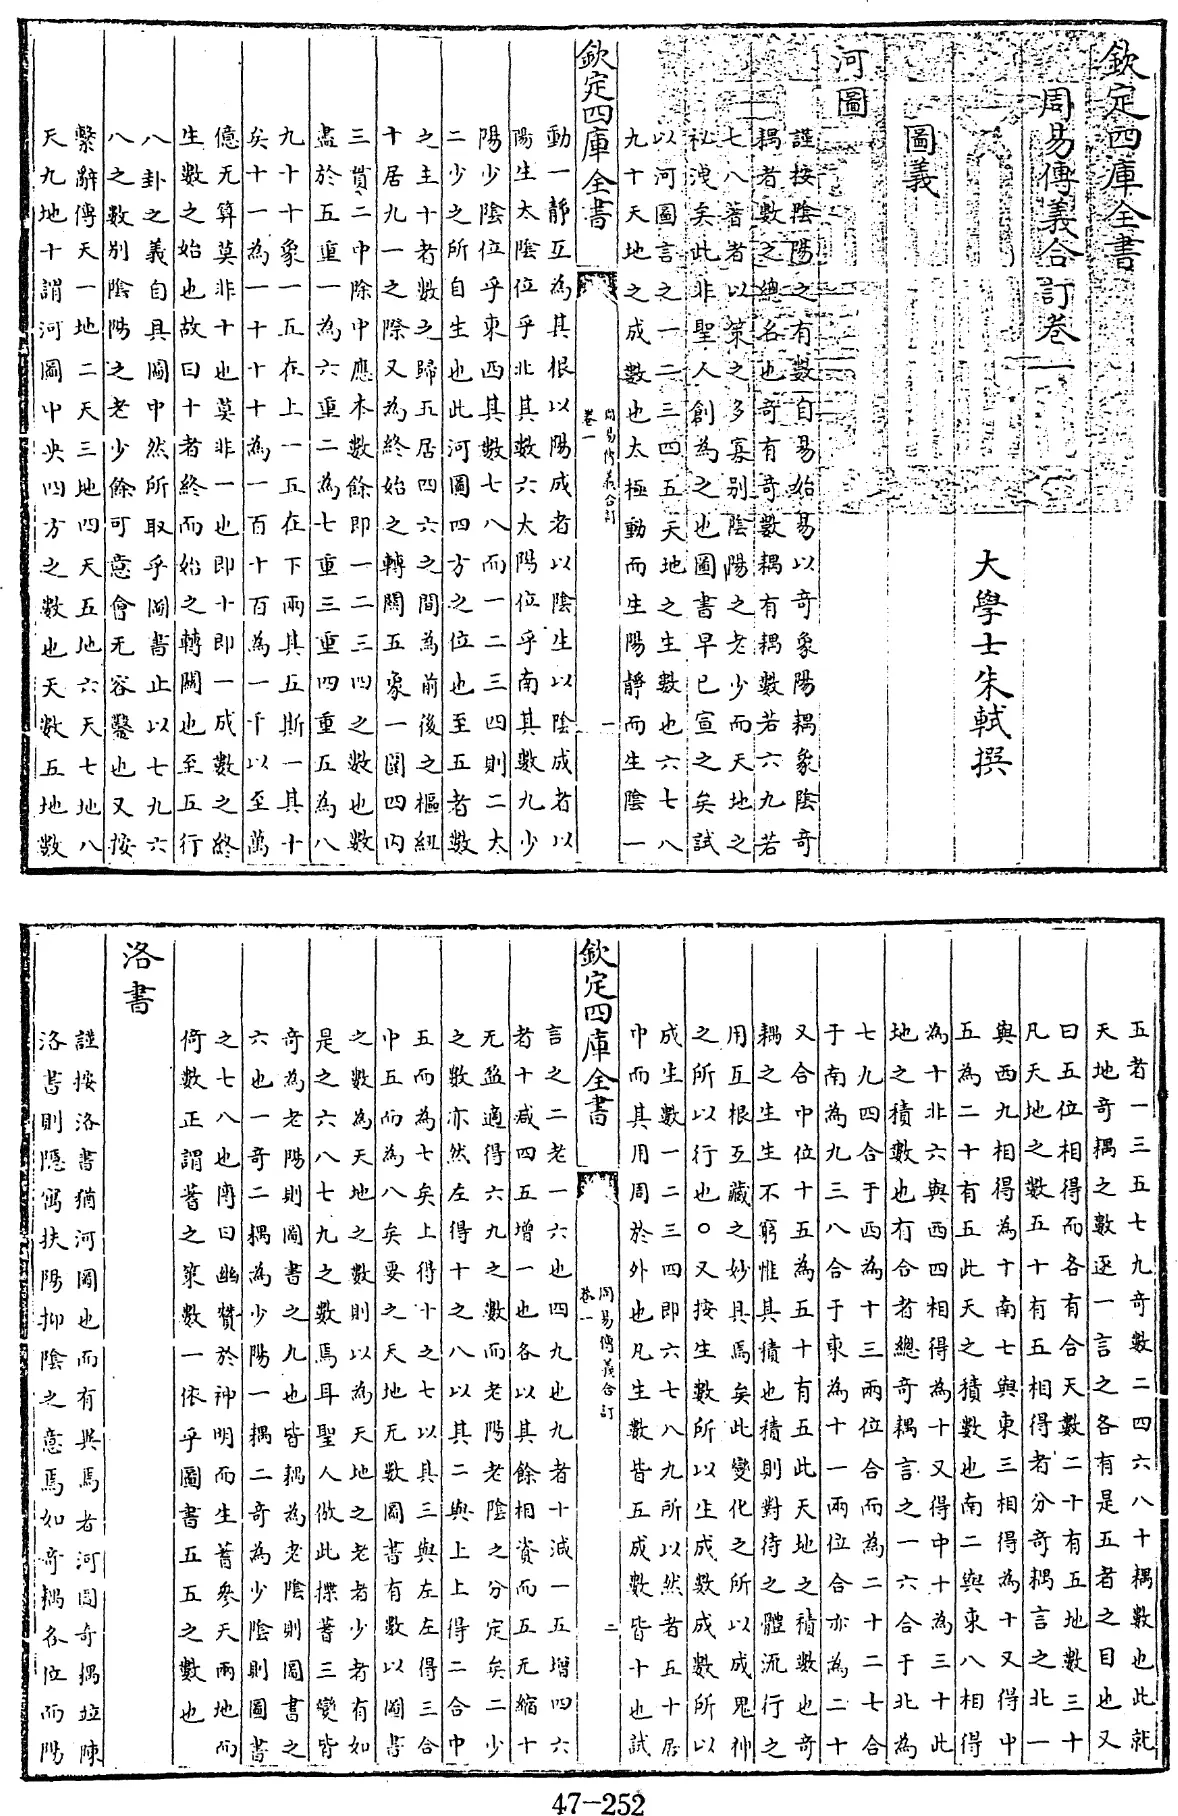 欽定四庫全書
周易傳義合訂卷一
大學士朱軾撰
圖義
河圖
謹按陰陽之有數自易始易以奇象陽耦象陰奇
耦者數之總名也奇有奇數耦有耦數若六九若
七八蓍者以策之多寡別陰陽之老少而天地之
祕洩矣此非聖人創為之也圖書早已宣之矣試
以河圖言之一二三四五天地之生數也六七八
九十天地之成數也太極動而生陽靜而生陰一
欽定四庫全書
周易傳義合訂
卷一
一
動一靜互為其根以陽成者以陰生以陰成者以
陽生太陰位乎北其數六太陽位乎南其數九少
陽少陰位乎東西其數七八而一二三四則二太
二少之所自生也此河圖四方之位也至五者數
之主十者數之歸五居四六之間為前後之樞紐
十居九一之際又為終始之轉關五象一圓四內
三貫二中除中應本數餘即一二三四之數也數
盡於五重一為六重二為七重三重四重五為八
九十十象一五在上一五在下兩其五斯一其十
矣十一為一十十十為一百十百為一千以至萬
億无算莫非十也莫非一也即十即一成數之終
生數之始也故曰十者終而始之轉關也至五行
八卦之義自具圖中然所取乎圖書止以七九六
八之數別陰陽之老少餘可意會无容鑿也又按
繫辭傳天一地二天三地四天五地六天七地八
天九地十謂河圖中央四方之數也天數五地數
五者一三五七九奇數二四六八十耦數也此就
天地奇耦之數逐一言之各有是五者之目也又
曰五位相得而各有合天數二十有五地數三十
凡天地之數五十有五相得者分奇耦言之北一
與西九相得為十南七與東三相得為十又得中
五為二十有五此天之積數也南二與東八相得
為十非六與西四相得為十又得中十為三十此
地之積數也有合者總奇耦言之一六合于北為
七九四合于西為十三兩位合而為二十二七合
于南為九三八合于東為十一兩位合亦為二十
又合中位十五為五十有五此天地之積數也奇
耦之生生不窮惟其積也積則對待之體流行之
用互根互藏之妙具焉矣此變化之所以成鬼神
之所以行也○又按生數所以生成數成數所以
成生數一二三四即六七八九所以然者五十居
中而其用周於外也凡生數皆五成數皆十也試
欽定四庫全書
周易傳義合訂
卷一
二
言之二老一六也四九也九者十減一五增四六
者十減四五增一也各以其餘相資而五无縮十
无盈適得六九之數而老陽老陰之分定矣二少
之數亦然左得十之八以其二與上上得二合中
五而為七矣上得十之七以其三與左左得三合
中五而為八矣要之天地无數圖書有數以圖書
之數為天地之數則以為天地之老者少者有如
是之六八七九之數焉耳聖人倣此揲蓍三變皆
奇為老陽則圖書之九也皆耦為老陰則圖書之
六也一奇二耦為少陽一耦二奇為少陰則圖書
之七八也傳曰幽贊於神明而生蓍參天兩地而
倚數正謂蓍之策數一依乎圖書五五之數也
洛書
謹按洛書猶河圖也而有異焉者河圖奇耦竝陳
洛書則隱寓扶陽抑陰之意焉如奇耦各位而陽
47-252